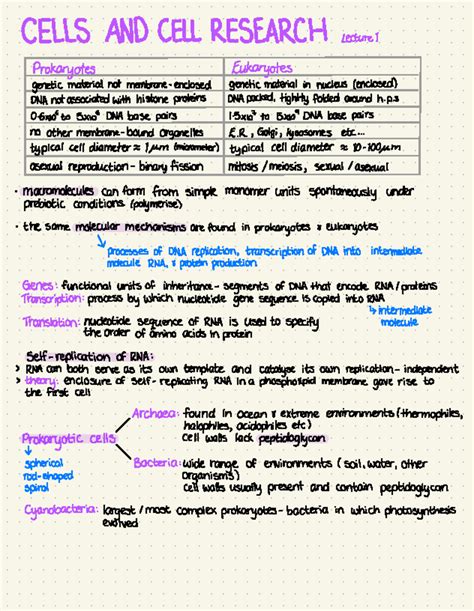 CELLS AND CELL RESEARCH Lecture 1
Prokaryotes Eukaryotes
genetic material not membrane-enclosed genetic material in nucleus (enclosed)
DNA not associated with histone proteins DNA packed, tightly folded around h.p.s
DNA base pairs DNA base pairs
no other membrane-bound organelles E.R, Golgi, lysosomes etc...
typical cell diameter ≈ 1μm (micrometer) typical cell diameter ≈ 10-100μm
asexual reproduction - binary fission mitosis/meiosis, sexual/asexual
• macromolecules can form from simple monomer units spontaneously under
prebiotic conditions (polymerise)
• the same molecular mechanisms are found in prokaryotes & eukaryotes
↳ processes of DNA replication, transcription of DNA into intermediate
molecule RNA, & protein production
Genes: functional units of inheritance - segments of DNA that encode RNA/proteins
Transcription: process by which nucleotide gene sequence is copied into RNA
↳ intermediate
molecule
Translation: nucleotide sequence of RNA is used to specify
the order of amino acids in protein
Self-replication of RNA:
> RNA can both serve as its own template and catalyse its own replication - independent
> theory: enclosure of self-replicating RNA in a phospholipid membrane gave rise to
the first cell
Archaea: found in ocean & extreme environments (thermophiles,
halophiles, acidophiles etc)
cell walls lack peptidoglycan
Prokaryotic cells
↓
spherical
rod-shaped
spiral
Bacteria: wide range of environments (soil, water, other
organisms)
cell walls usually present and contain peptidoglycan
Cyanobacteria: largest/most complex prokaryotes - bacteria in which photosynthesis
evolved